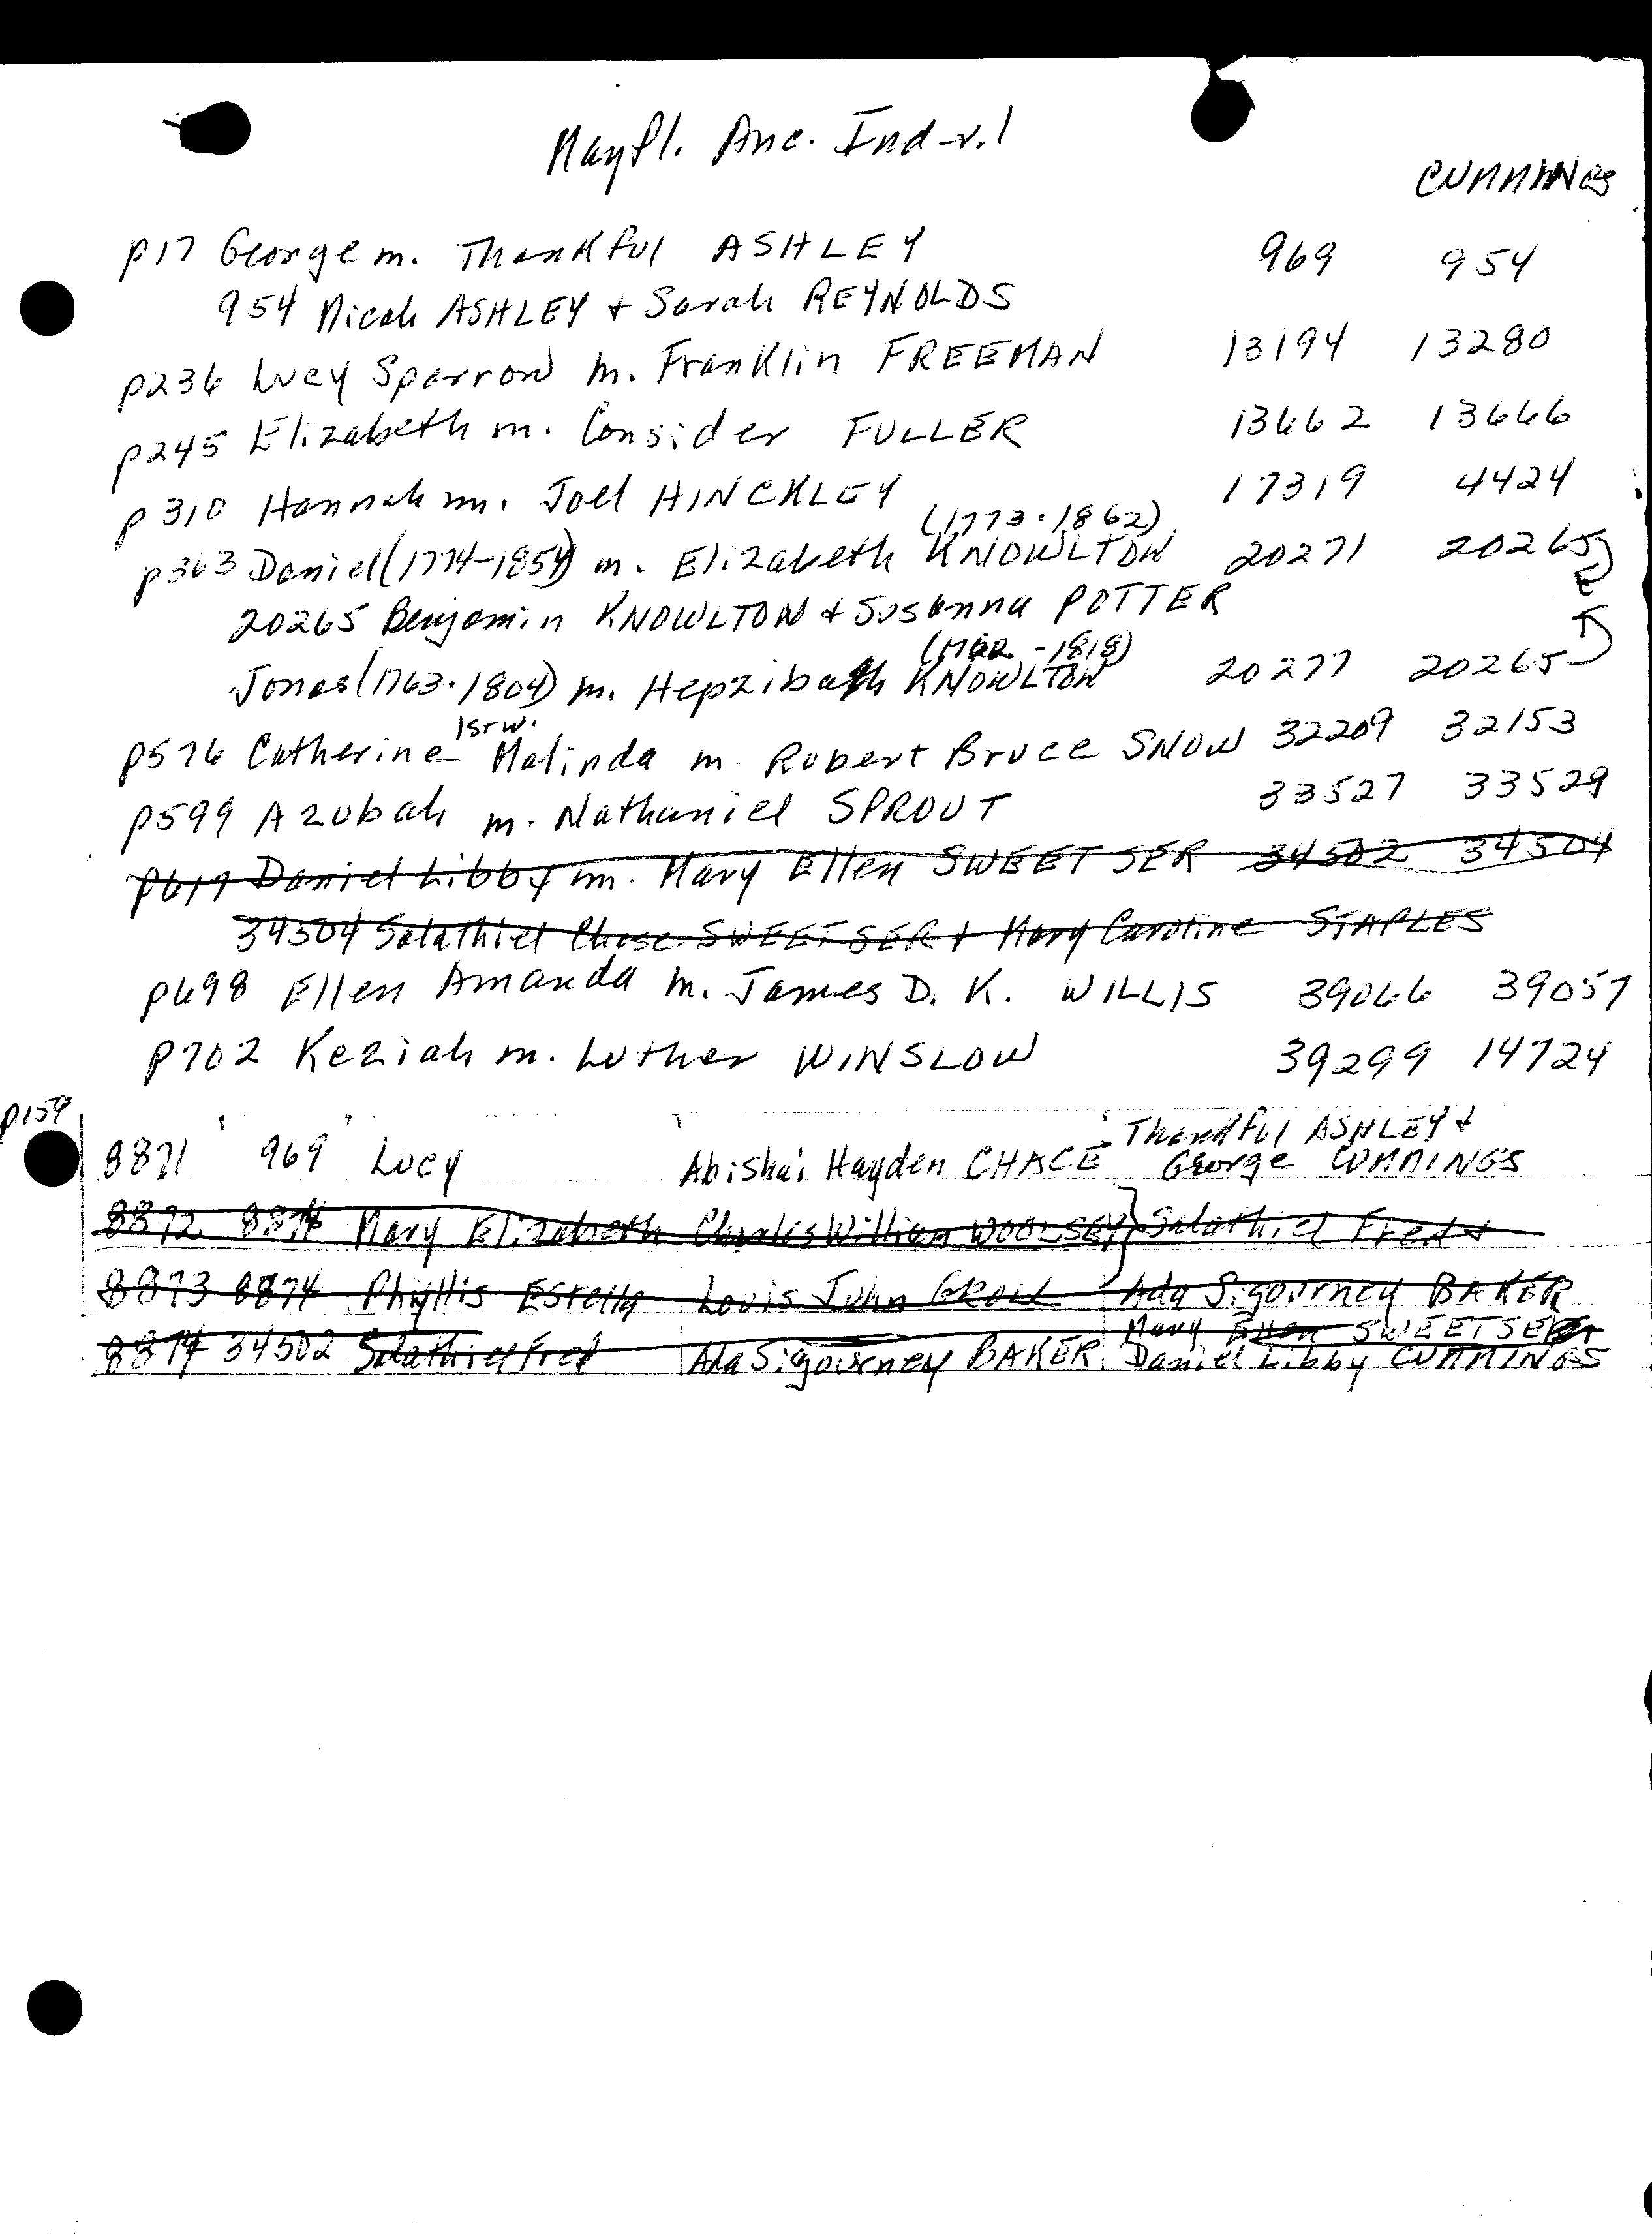 Mayfl. Anc. Ind-v.1
CUMMINGS
p17 George m. Thankful ASHLEY 969 954
954 Micah ASHLEY + Sarah REYNOLDS
p236 Lucy Sparrow m. Franklin FREEMAN 13194 13280
p245 Elizabeth m. Consider FULLER 13662 13666
p310 Hannah m. Joel HINCKLEY 17319 4424
(1773-1862)
p363 Daniel (1774-1854) m. Elizabeth KNOWLTON 20271 20265
20265 Benjamin KNOWLTON + Susanna POTTER
Jonas (1763-1804) m. Hepzibah KNOWLTON 20277 20265
1st w.
p576 Catherine Malinda m. Robert Bruce SNOW 32209 32153
p599 Azubah m. Nathaniel SPROUT 33527 33529
p617 Daniel Libby m. Mary Ellen SWEETSER 34502 34504
34504 Salathiel Chase SWEETSER + Mary Caroline STAPLES
p698 Ellen Amanda m. James D. K. WILLIS 39066 39057
p702 Keziah m. Luther WINSLOW 39299 14724
p159
Thankful ASHLEY +
8871 969 Lucy Abishai Hayden CHACE George CUMMINGS
8872 8874 Mary Elizabeth Charles William WOOLSEY } Salathiel Fred +
8873 8874 Phyllis Estella Louis John Ada Sigourney BAKER
Mary Ellen SWEETSER +
8874 34502 Salathiel Fred Ada Sigourney BAKER Daniel Libby CUMMINGS